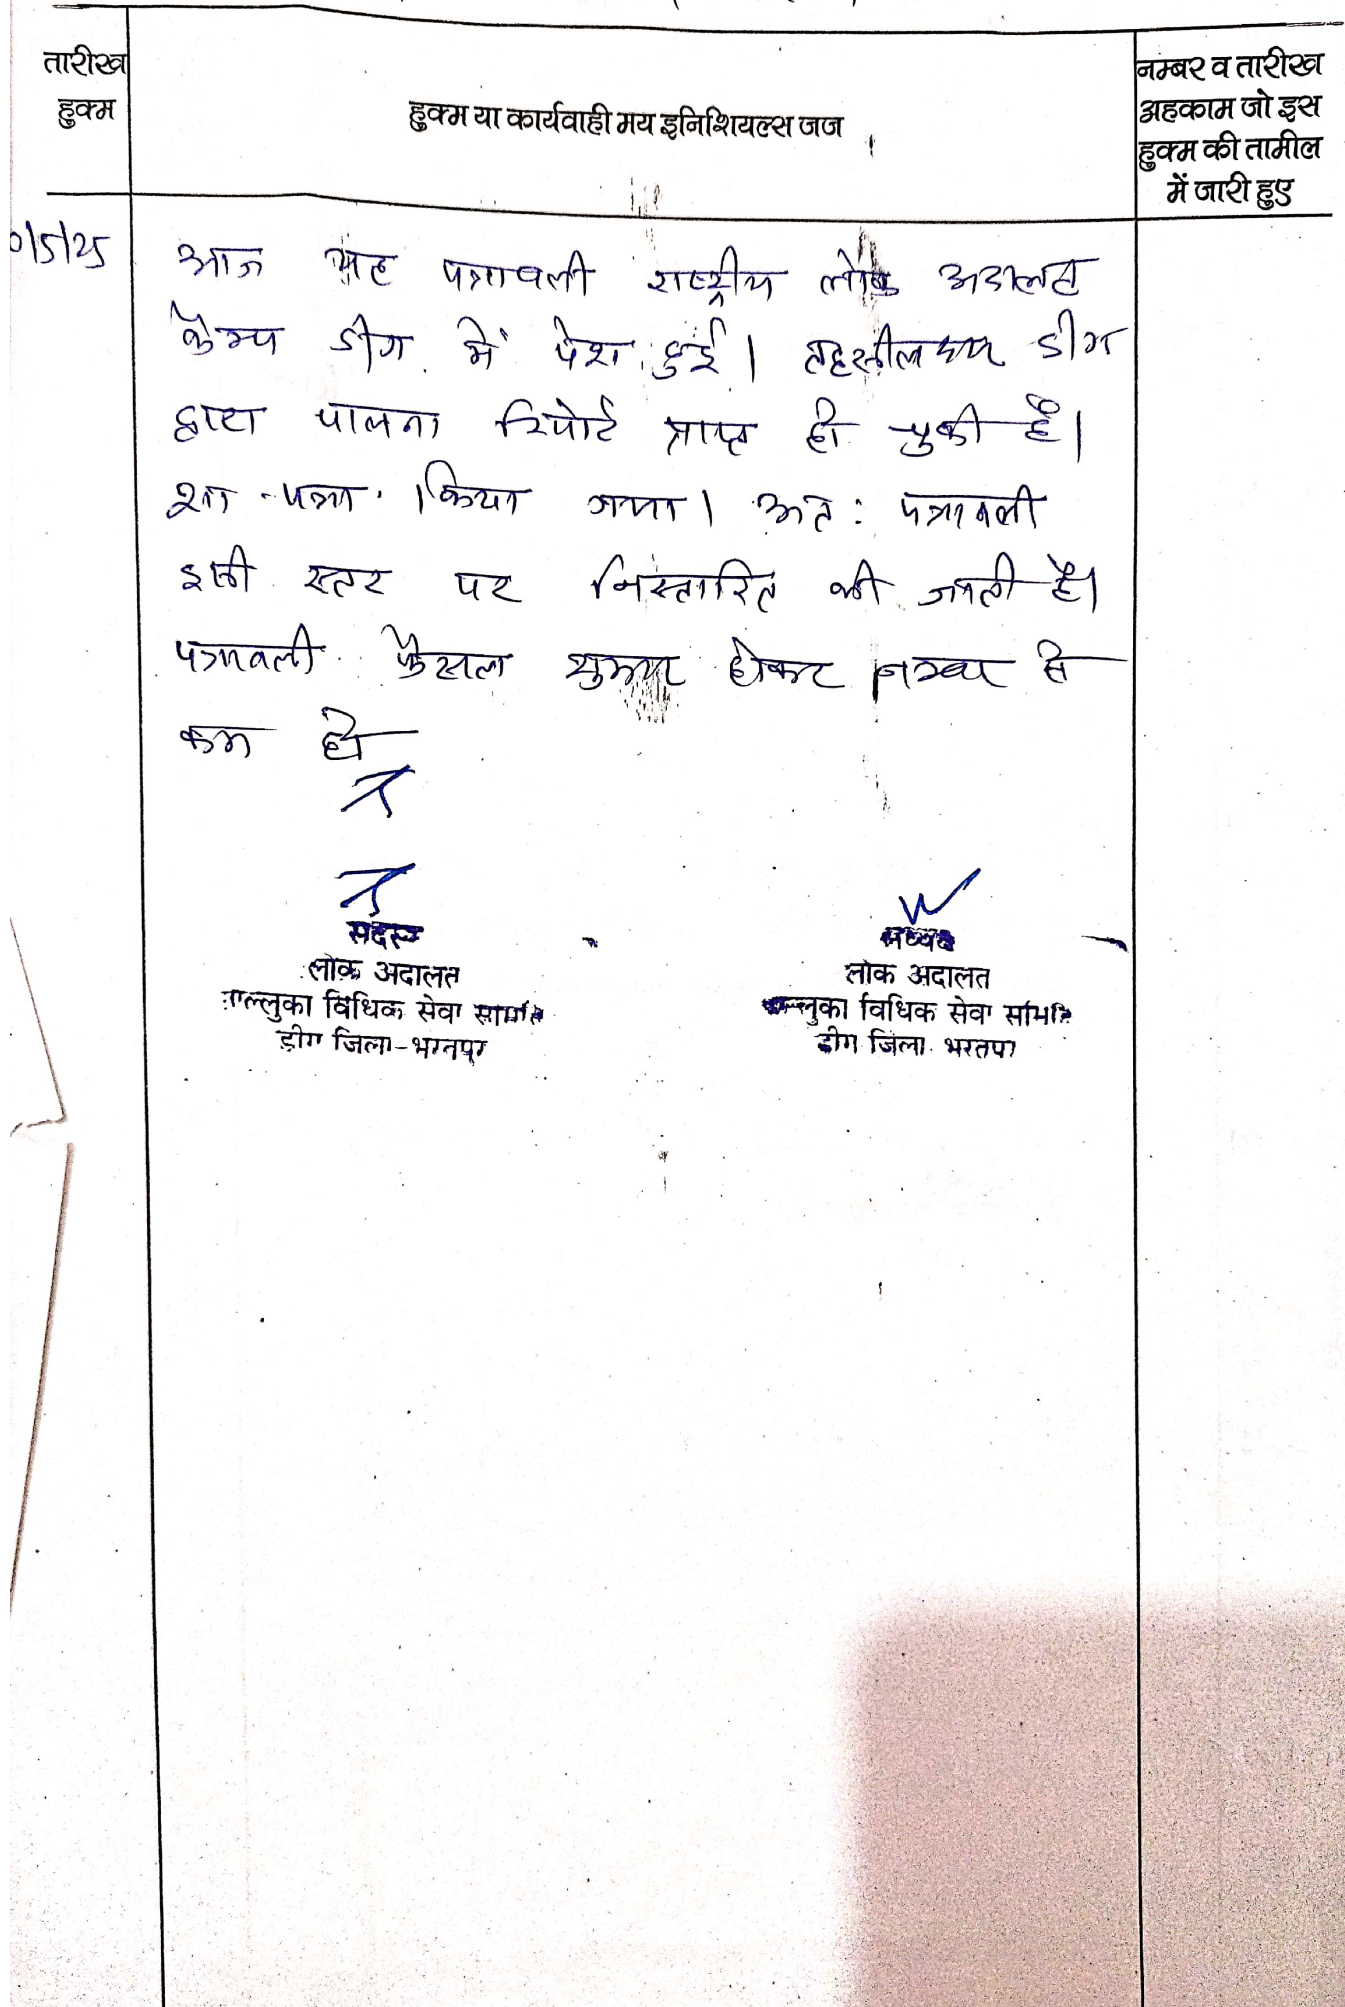 तारीख
हुक्म
हुक्म या कार्यवाही मय इनिशियल्स जज
नम्बर व तारीख
अहकाम जो इस
हुक्म की तामील
में जारी हुए
0/5/25
आज यह पत्रावली राष्ट्रीय लोक अदालत
कैम्प डीग में पेश हुई। तहसीलदार डीग
द्वारा पालना रिपोर्ट प्राप्त हो चुकी है।
शा. पत्रा. किया गया। अतः पत्रावली
इसी स्तर पर निस्तारित की जाती है।
पत्रावली फैसला शुमार होकर नम्बर से
कम हो
सदस्य
लोक अदालत
ताल्लुका विधिक सेवा समिति
डीग जिला-भरतपुर
अध्यक्ष
लोक अदालत
ताल्लुका विधिक सेवा समिति
डीग जिला भरतपुर